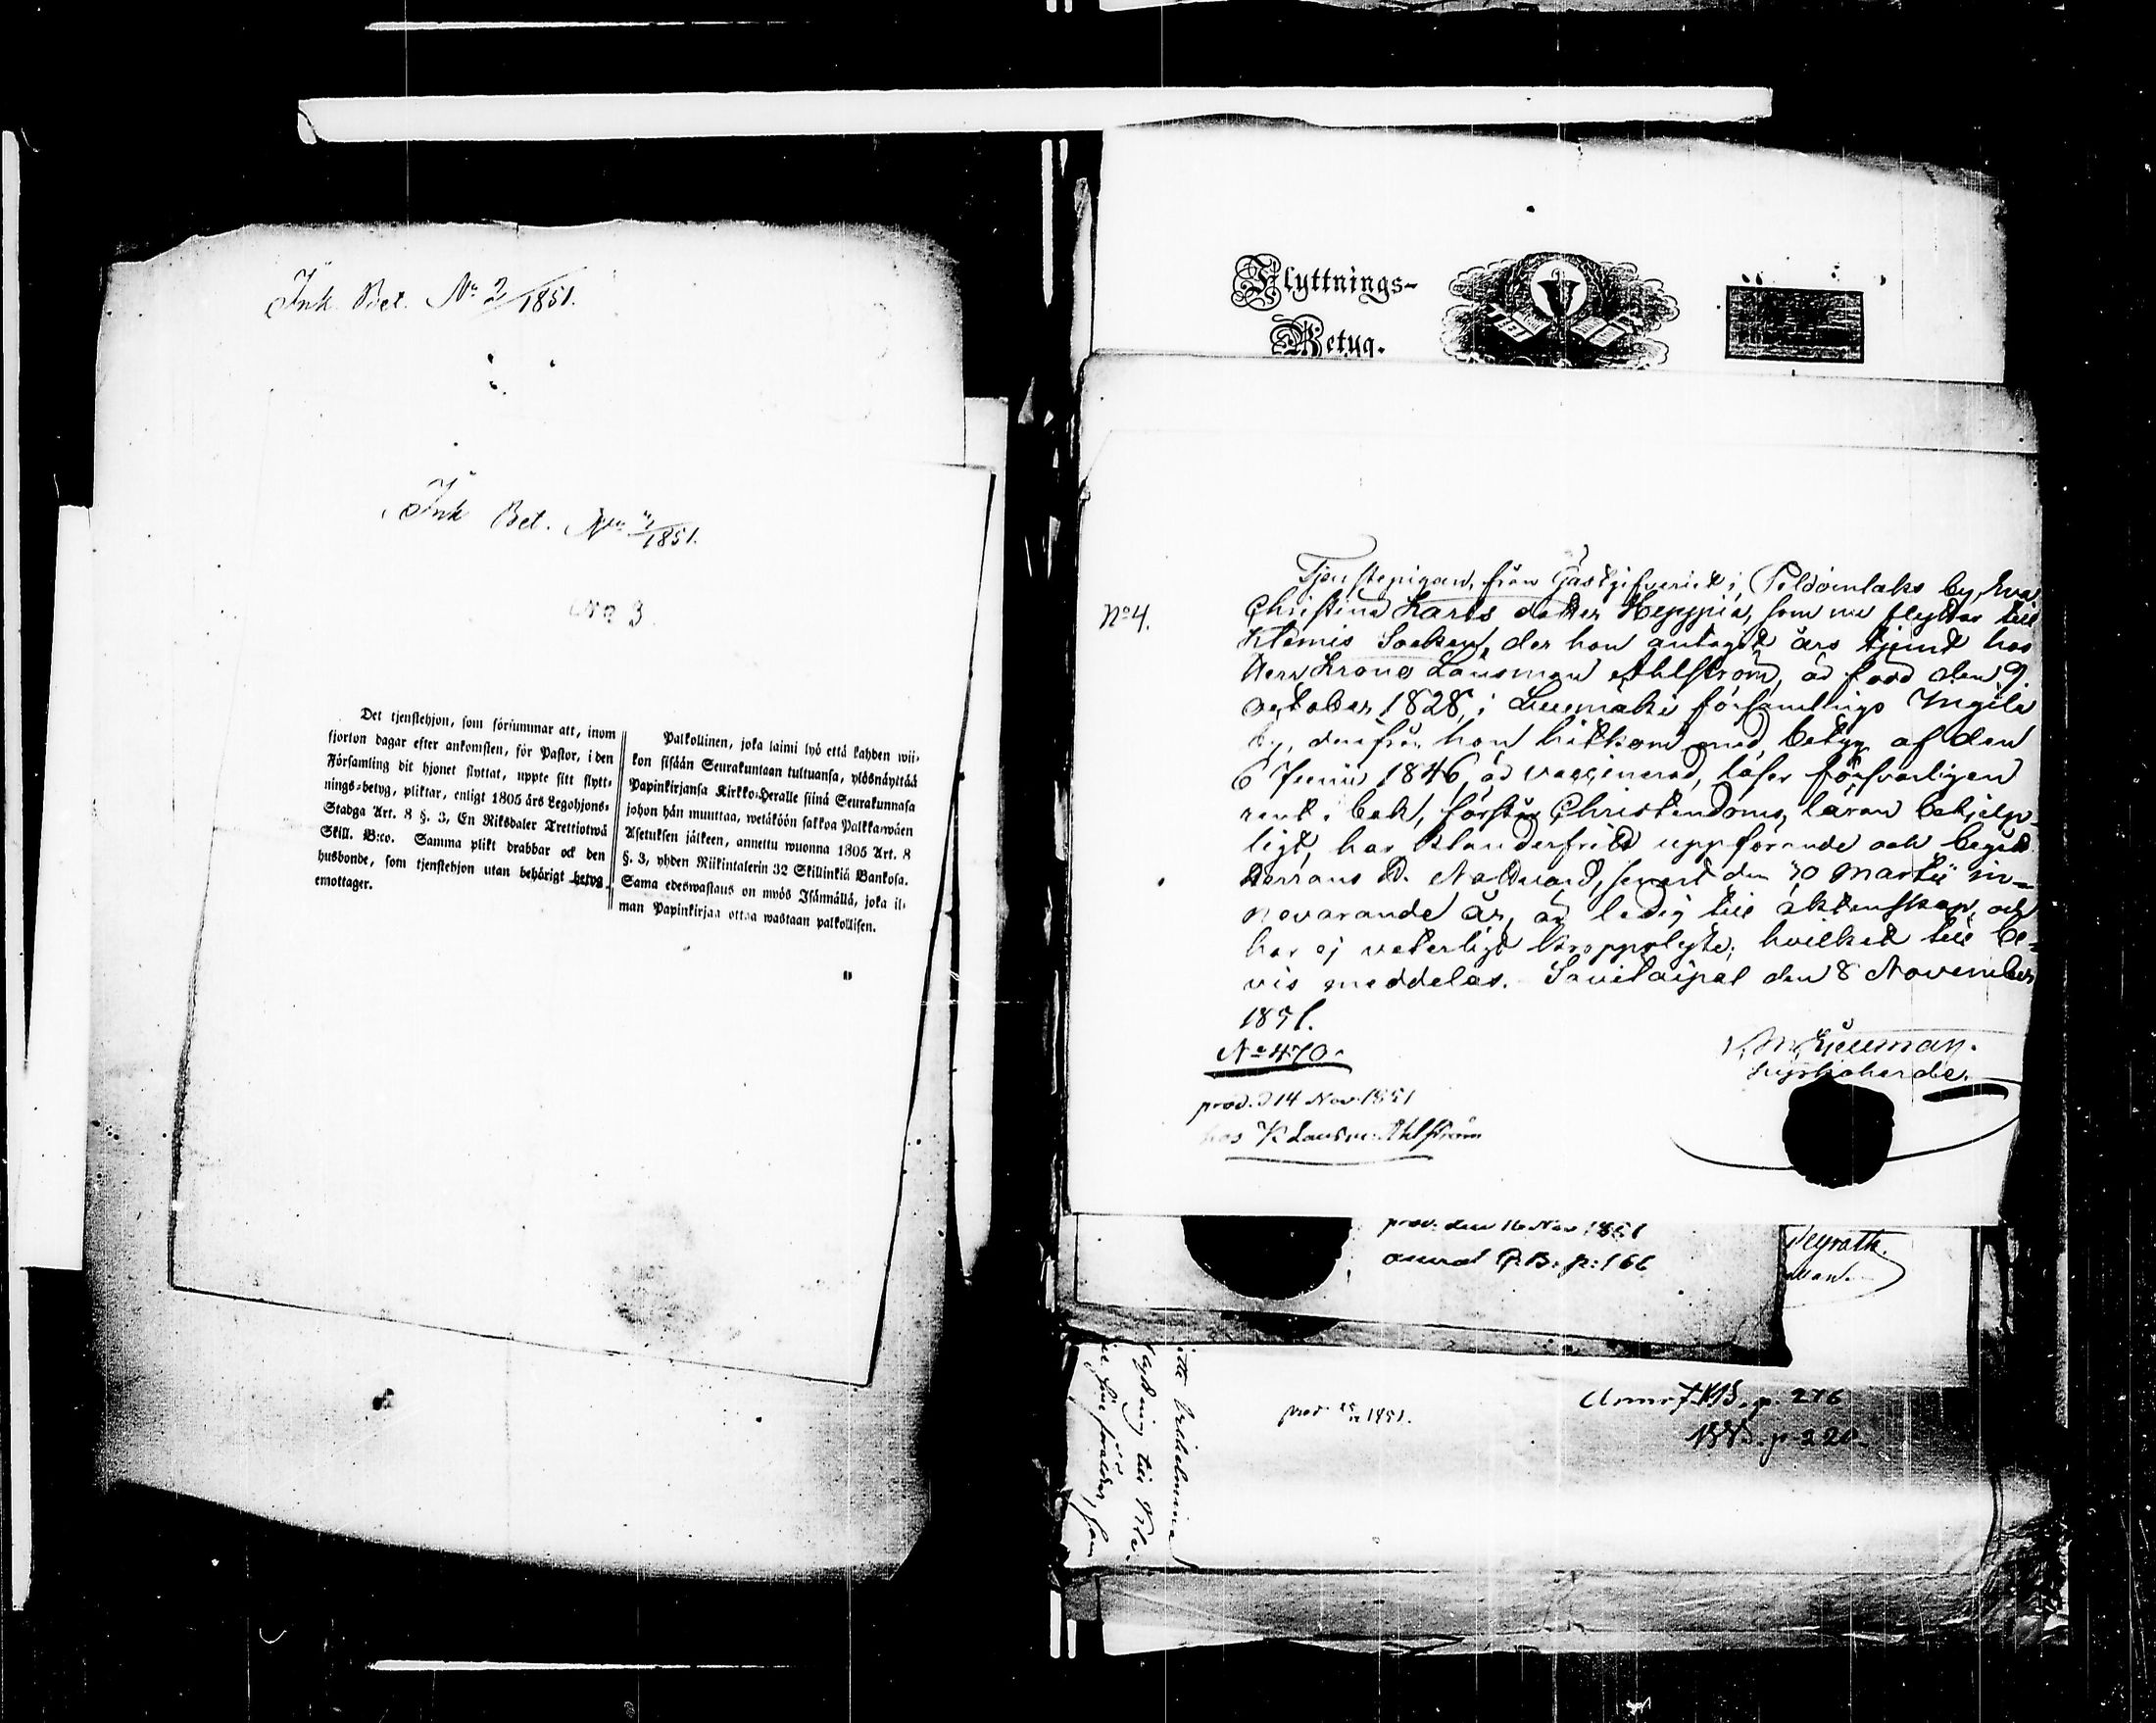 Ink. Bet. No 2/1851.
Ink Bet. No 3/1851.
No 3
Det tjenstehjon, som försummar att, inom
fjorton dagar efter ankomsten, för Pastor, i den
Församling dit hjonet flyttat, uppte sitt flytt-
nings-betyg, pliktar, enligt 1805 års Legohjons-
Stadga Art. 8 §. 3, En Riksdaler Trettiotwå
Skill. B:co. Samma plikt drabbar ock den
husbonde, som tjenstehjon utan behörigt betyg
emottager.
Palkollinen, joka laimi lyö että kahden wii-
kon sisään Seurakuntaan tultuansa, ylösnäyttää
Papinkirjansa Kirkko-Herralle siinä Seurakunnasa
johon hän muuttaa, wetäköön sakkoa Palkkawäen
Asetuksen jälkeen, annettu wuonna 1805 Art. 8
§. 3, yhden Riikintalerin 32 Skillinkiä Bankosa.
Sama edeswastaus on myös Isännällä, joka il-
man Papinkirjaa ottaa wastaan palkollisen.
Flyttnings-
Betyg.
No 4.
Tjenstepigan, från Gästgifveriet i Peldoinlaks by, Eva
Christina Karls dotter Heppiä, som nu flyttar till
Klemis Socken, der hon antagit års tjenst hos
Herr Krono Länsman Ahlström, är född den 9
october 1828, i Luumäki församlings Ingilä
by, derifrån hon hitkom med betyg af den
6 Junii 1846, är vaccinerad, läser försvarligen
rent i bok, förstår Christendoms läran behjelp-
ligt, har klanderfritt uppförande och begått
Herrans H. Nattvard, senast den 30 Martii in-
novarande år, är ledig till äktenskap, och
har ej veterligt kroppslyte; hvilket till be-
vis meddelas. Savitaipal den 8 November
1851.
No 470.
kyrkoherde.
prod. d 14 Nov. 1851
hos K Länsm: Ahlström
prod. den 16 Nov 1851
P.B. p: 166
prod. 25/12 1851.
p. 276
p 220.
Vilhelmina
flyttning till Kle-
föräldrar, som